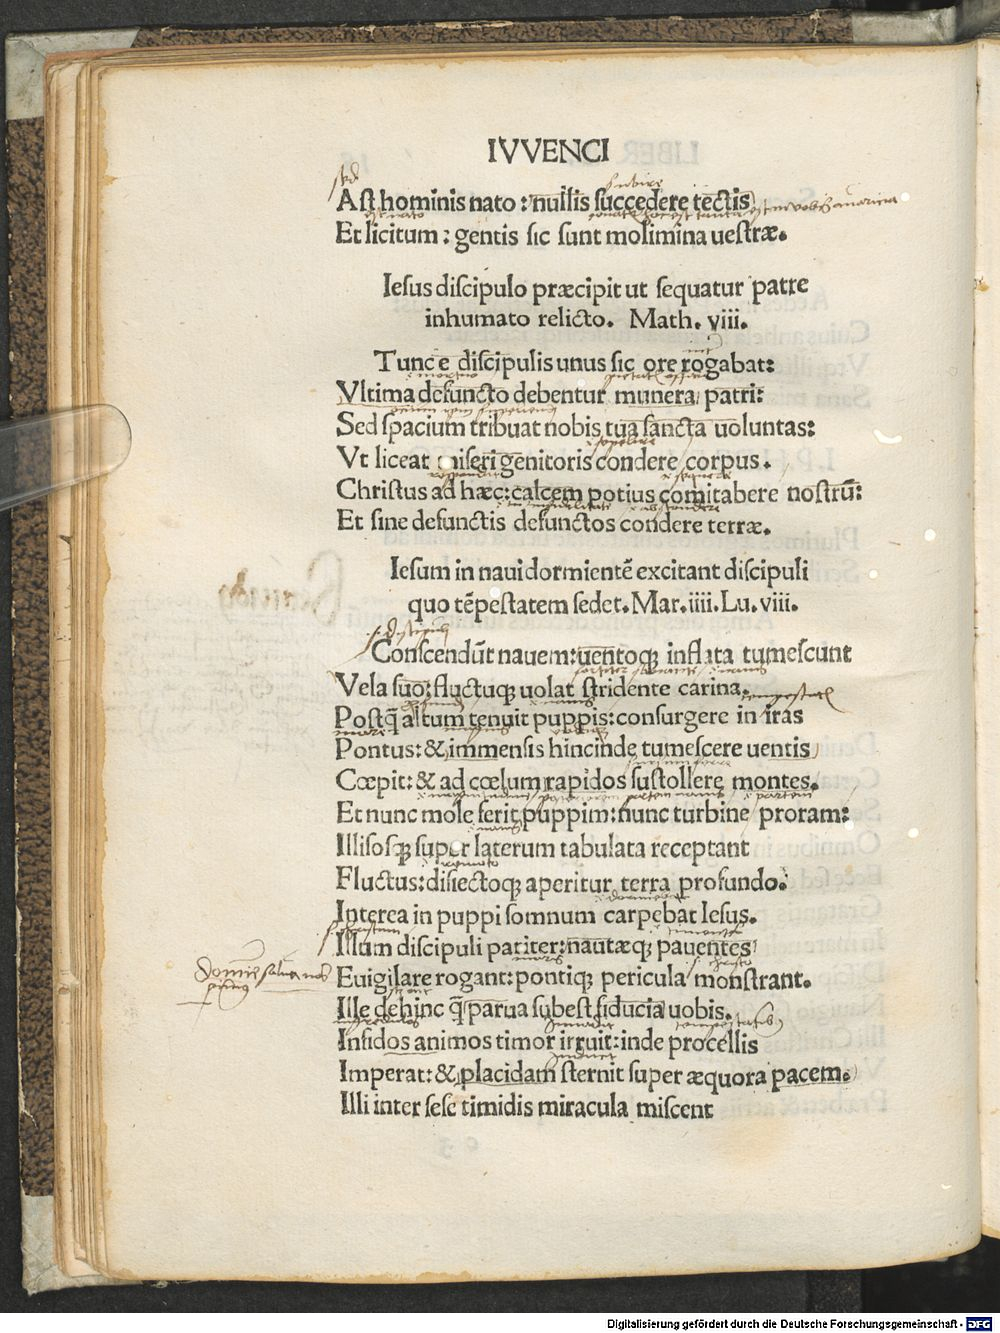 IVVENCI
sed
subire
Ast hominis nato : nullis succedere tectis
Et licitum : gentis sic sunt molimina uestræ.
Iesus discipulo præcipit ut sequatur patre
inhumato relicto. Math. viii.
Tunc e discipulis unus sic ore rogabat:
mortuo
Vltima defuncto debentur munera patri:
Sed spacium tribuat nobis tua sancta uoluntas:
sepelire
Vt liceat miseri genitoris condere corpus.
Christus ad hæc: calcem potius comitabere nostrū:
Et sine defunctis defunctos condere terræ.
Iesum in naui dormientē excitant discipuli
quo tēpestatem sedet. Mar. iiii. Lu. viii.
s. discipuli
Conscendūt nauem: uentoq; inflata tumescunt
Vela suo: fluctuq; uolat stridente carina.
Postq̄ altum tenuit puppis: consurgere in iras
mare
Pontus: & immensis hincinde tumescere uentis
Cœpit: & ad cœlum rapidos sustollere montes.
Et nunc mole ferit puppim: nunc turbine proram:
Illisosq; super laterum tabulata receptant
Fluctus: disiectoq; aperitur terra profundo.
Interea in puppi somnum carpebat Iesus.
Illum discipuli pariter: nautæq; pauentes
maris
Euigilare rogant: pontiq; pericula monstrant.
Ille dehinc q̄ parua subest fiducia uobis.
Infidos animos timor irruit: inde procellis
Imperat: & placidam sternit super æquora pacem.
Illi inter sese timidis miracula miscent
Digitalisierung gefördert durch die Deutsche Forschungsgemeinschaft - DFG